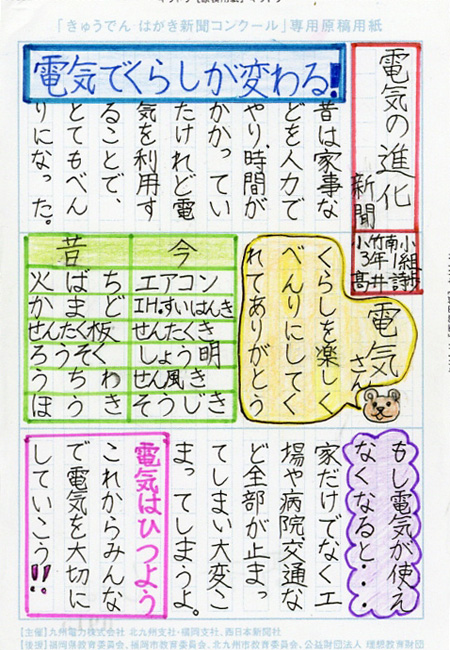 「きゅうでん はがき新聞コンクール」専用原稿用紙
電気の進化
新聞
小竹南小
3年1組
髙井
電気でくらしが変わる!
昔は家事な
どを人力で
やり、時間が
かかってい
たけれど電
気を利用す
ることで、
とてもべん
りになった。
電気
さん
くらしを楽しく
べんりにしてく
れてありがとう
昔 今
火ばち エアコン
かまど IH.すいはんき
せんたく板 せんたくき
ろうそく しょう明
うちわ せん風き
ほうき そうじき
もし電気が使え
なくなると・・・
家だけでなく工
場や病院、交通な
ど全部が止まっ
てしまい大変こ
まってしまうよ。
電気はひつよう
これからみんな
で電気を大切に
していこう!!
【主催】九州電力株式会社 北九州支社・福岡支社、西日本新聞社
【後援】福岡県教育委員会、福岡市教育委員会、北九州市教育委員会、公益財団法人 理想教育財団